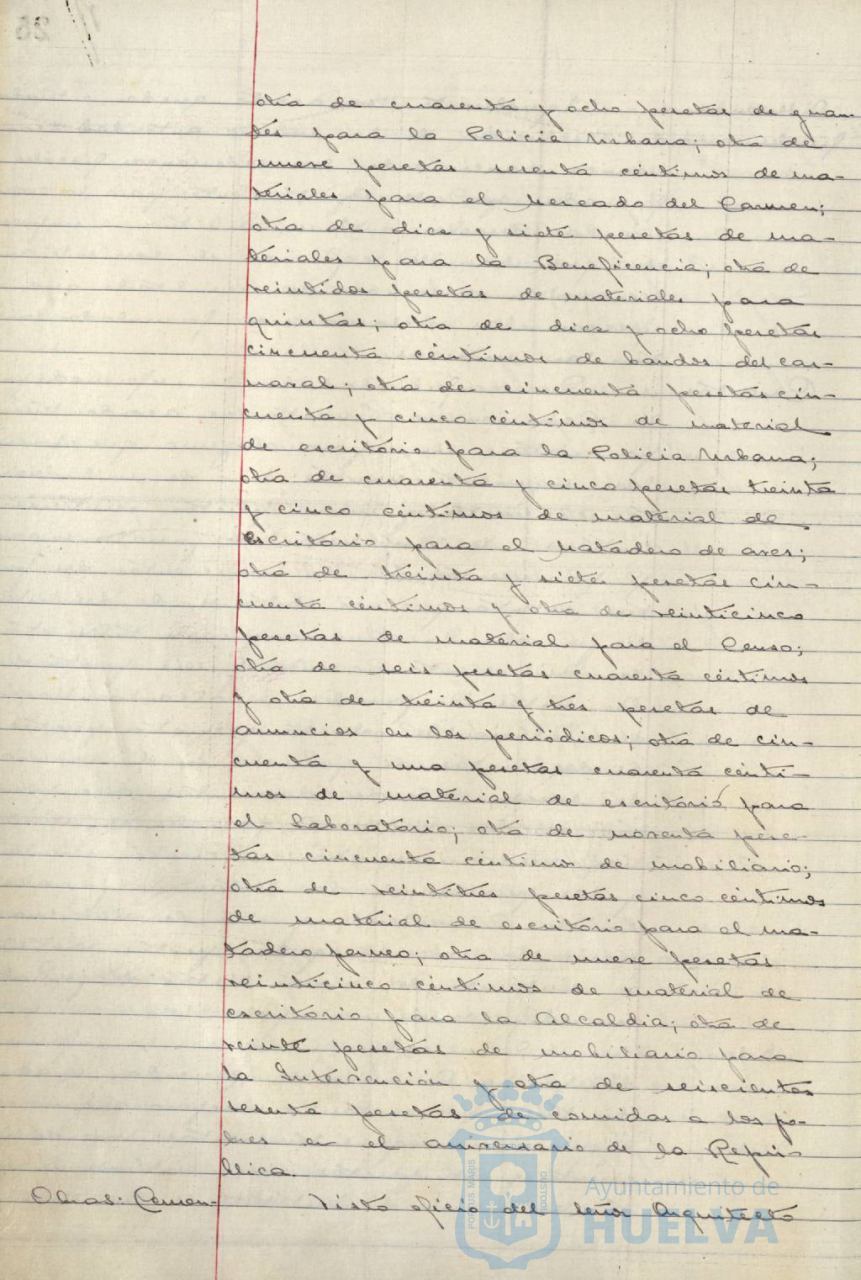 otra de cuarenta y ocho pesetas de guan-
tes para la Policia Urbana; otra de
nueve pesetas sesenta céntimos de ma-
teriales para el Mercado del Carmen;
otra de diez y siete pesetas de ma-
teriales para la Beneficencia; otra de
veintidos pesetas de materiales para
quintas; otra de diez y ocho pesetas
cincuenta céntimos de bandos del car-
naval; otra de cincuenta pesetas cin-
cuenta y cinco céntimos de material
de escritório para la Policia Urbana;
otra de cuarenta y cinco pesetas treinta
y cinco céntimos de material de
escritório para el Matadero de aves;
otra de treinta y siete pesetas cin-
cuenta céntimos y otra de veinticinco
pesetas de material para el Censo;
otra de seis pesetas cuarenta céntimos
y otra de treinta y tres pesetas de
anuncios en los periódicos; otra de cin-
cuenta y una pesetas cuarenta cénti-
mos de material de escritorio para
el Laboratorio; otra de noventa pese-
tas cincuenta céntimos de mobiliario;
otra de veintitres pesetas cinco céntimos
de material de escritório para el ma-
tadero porcuno; otra de nueve pesetas
veinticinco céntimos de material de
escritório para la Alcaldia; otra de
veinte pesetas de mobiliario para
la Intervención y otra de seiscientas
sesenta pesetas de comidas a los po-
bres en el aniversario de la Repú-
blica.
Obras: Cemen-
Visto oficio del señor Arquitecto
PORTUS MARIS
CUSTODIA
Ayuntamiento de
HUELVA